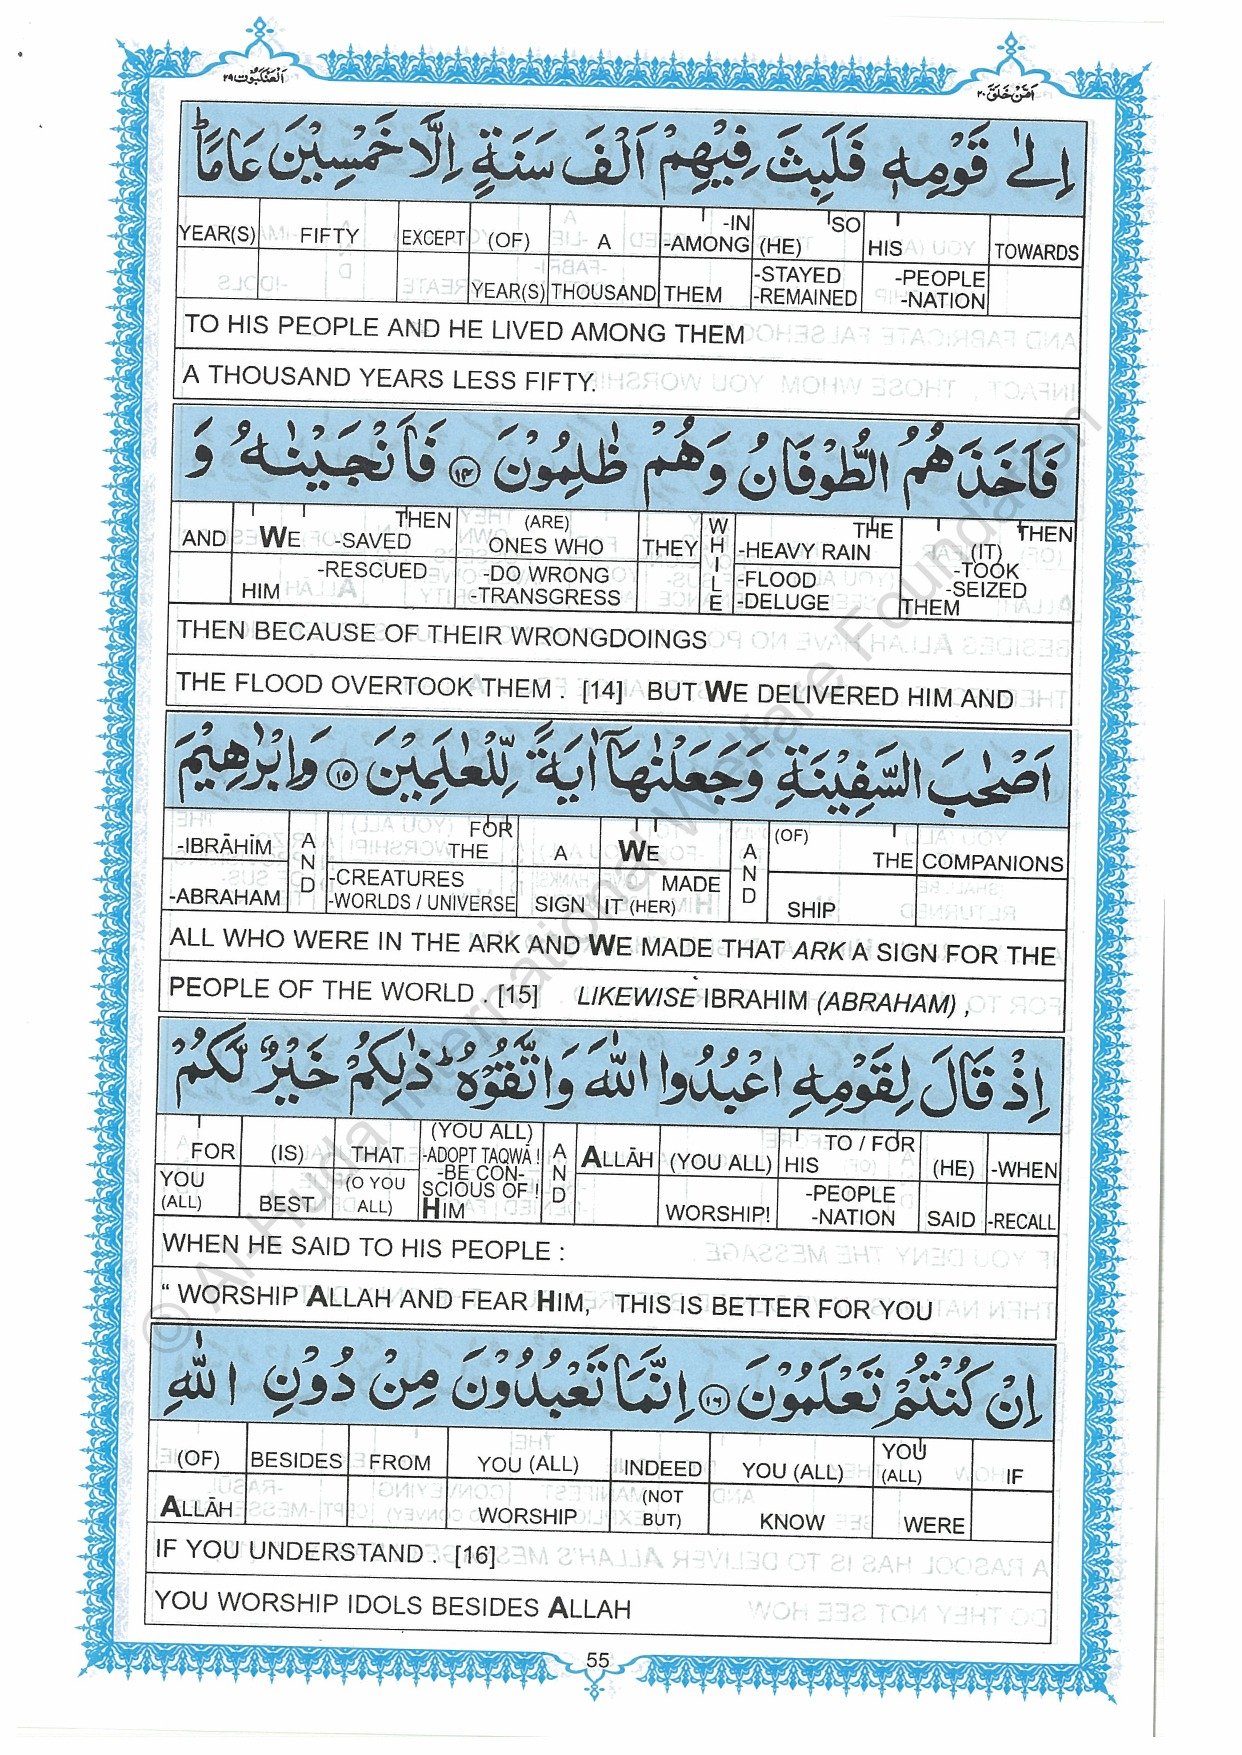 العنكبوت ٢٩
امن خلق ٢٠
اِلٰى قَوْمِهٖ فَلَبِثَ فِيْهِمْ اَلْفَ سَنَةٍ اِلَّا خَمْسِيْنَ عَامًا ؕ
YEAR(S) FIFTY EXCEPT (OF) A -IN -AMONG SO (HE) HIS TOWARDS
YEAR(S) THOUSAND THEM -STAYED -REMAINED -PEOPLE -NATION
TO HIS PEOPLE AND HE LIVED AMONG THEM
A THOUSAND YEARS LESS FIFTY.
فَاَخَذَهُمُ الطُّوْفَانُ وَهُمْ ظٰلِمُوْنَ ١٤ فَاَنْجَيْنٰهُ وَ
AND WE THEN -SAVED (ARE) ONES WHO THEY WHILE THE -HEAVY RAIN THEN (IT) -TOOK
HIM -RESCUED -DO WRONG -TRANSGRESS -FLOOD -DELUGE -SEIZED THEM
THEN BECAUSE OF THEIR WRONGDOINGS
THE FLOOD OVERTOOK THEM . [14] BUT WE DELIVERED HIM AND
اَصْحٰبَ السَّفِيْنَةِ وَجَعَلْنٰهَاۤ اٰيَةً لِّلْعٰلَمِيْنَ ١٥ وَاِبْرٰهِيْمَ
-IBRĀHĪM AND FOR THE A WE AND (OF) THE COMPANIONS
-ABRAHAM -CREATURES -WORLDS / UNIVERSE SIGN MADE IT (HER) SHIP
ALL WHO WERE IN THE ARK AND WE MADE THAT ARK A SIGN FOR THE
PEOPLE OF THE WORLD . [15] LIKEWISE IBRAHIM (ABRAHAM) ,
اِذْ قَالَ لِقَوْمِهِ اعْبُدُوا اللّٰهَ وَاتَّقُوْهُ ؕ ذٰلِكُمْ خَيْرٌ لَّكُمْ
FOR (IS) THAT (YOU ALL) -ADOPT TAQWĀ ! AND ALLĀH (YOU ALL) TO / FOR HIS (HE) -WHEN
YOU (ALL) BEST (O YOU ALL) -BE CON-SCIOUS OF ! HIM WORSHIP! -PEOPLE -NATION SAID -RECALL
WHEN HE SAID TO HIS PEOPLE :
“ WORSHIP ALLAH AND FEAR HIM, THIS IS BETTER FOR YOU
اِنْ كُنْتُمْ تَعْلَمُوْنَ ١٦ اِنَّمَا تَعْبُدُوْنَ مِنْ دُوْنِ اللّٰهِ
(OF) BESIDES FROM YOU (ALL) INDEED YOU (ALL) YOU (ALL) IF
ALLĀH WORSHIP (NOT BUT) KNOW WERE
IF YOU UNDERSTAND . [16]
YOU WORSHIP IDOLS BESIDES ALLAH
55
© Al-Huda International Welfare Foundation